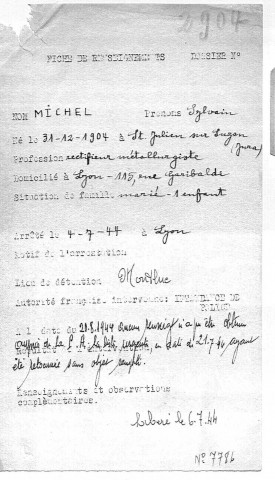 2904
FICHE DE RENSEIGNEMENTS DOSSIER N°
NOM MICHEL Prenoms Sylvain
Né le 31-12-1904 à St. Julien sur Suran
(Jura)
Profession rectifieur métallurgiste
Domicilié à Lyon - 115, rue Garibaldi
Situation de famille marié - 1 enfant
Arrêté le 4-7-44 à Lyon
Motif de l'arrestation
Lieu de détention Montluc
Autorité française intervenue: INTENDANCE DE
POLICE
A la date du 20.8.1944 aucun n'a pu être obtenu
auprès de la P.A. la liste en date du 21.7.44 ayant
été retournée sans objet rempli.
Renseignements et observations
complémentaires.
Libéré le 6.7.44
N° 7786